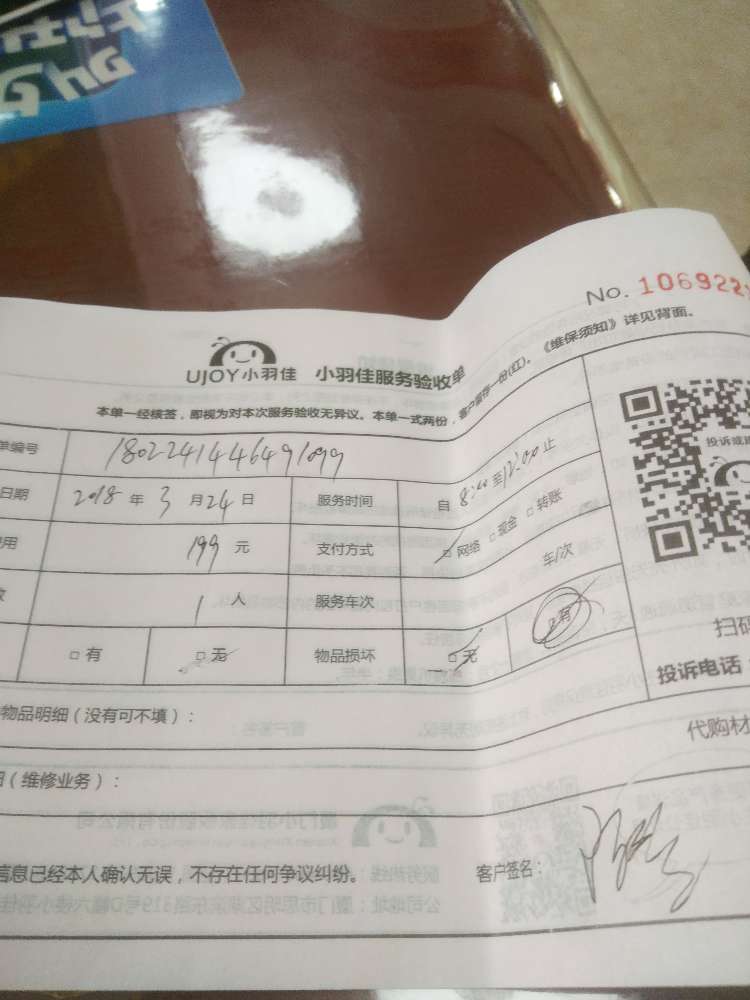 No. 106922
UJOY小羽佳 小羽佳服务验收单
本单一经核签，即视为对本次服务验收无异议。本单一式两份，客户留存一份(红)。《维保须知》详见背面。
单编号 1802241446491099
日期 2018 年 3 月 24 日 服务时间 自 8:00 至 12:00 止
用 199 元 支付方式 □ 网络 □ 现金 □ 转账
数 1 人 服务车次 车/次
□ 有 □ 无 物品损坏 □ 无 □ 有
投诉或
扫码
投诉电话：
物品明细（没有可不填）：
代购材
（维修业务）：
信息已经本人确认无误，不存在任何争议纠纷。 客户签名：